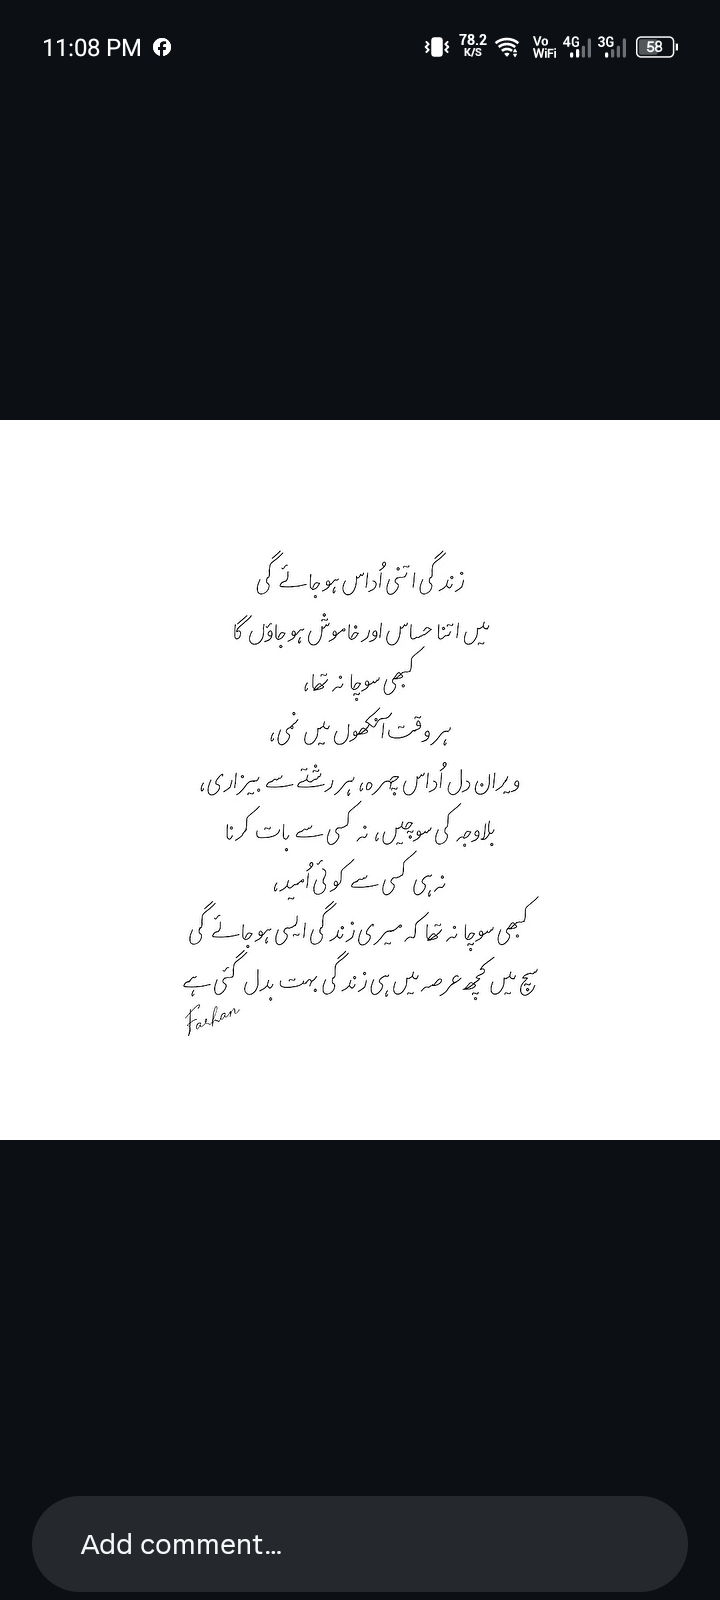 11:08 PM
78.2 K/S
Vo WiFi 4G 3G 58
زندگی اتنی اُداس ہو جائے گی
میں اتنا حساس اور خاموش ہو جاؤں گا
کبھی سوچا نہ تھا،
ہر وقت آنکھوں میں نمی،
ویران دل اُداس چہرہ، ہر رشتے سے بیزاری،
بلاوجہ کی سوچیں، نہ کسی سے بات کرنا
نہ ہی کسی سے کوئی اُمید،
کبھی سوچا نہ تھا کہ میری زندگی ایسی ہو جائے گی
سچ میں کچھ عرصہ میں ہی زندگی بہت بدل گئی ہے
Farhan
Add comment...